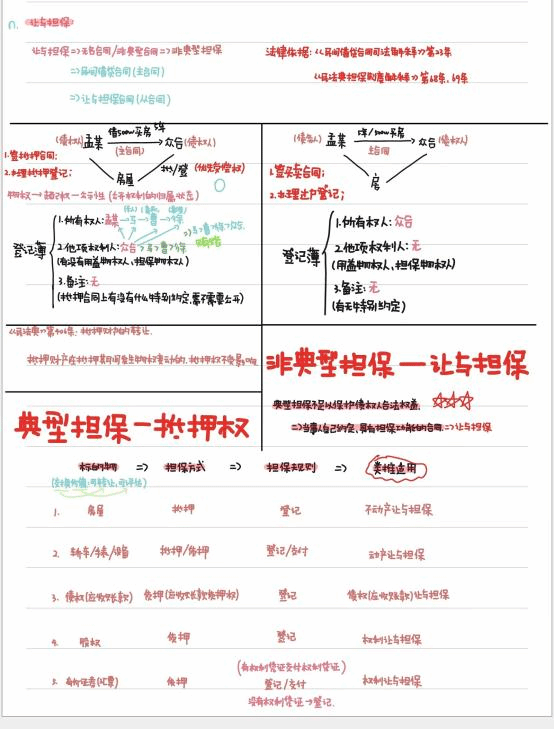 n. 让与担保
让与担保=>无名合同/非典型合同=>非典型担保
=>民间借贷合同(主合同)
=>让与担保合同(从合同)
法律依据:《民间借贷合同司法解释》第23条
《民法典担保制度解释》第68条、69条
(债务人)孟某 借500w买房 5年 众合(债权人)
(主合同)
1.签抵押合同;
2.办理抵押登记;
房屋 抵/登 (优先受偿权)
物权→
登记簿
1.所有权人:孟某
2.他项权利人:众合
(有没有用益物权人、担保物权人)
3.备注:无
(抵押合同上有没有什么特别约定,需不需要公开)
(债务人)孟某 众合(债权人)
主合同
1.签买卖合同;
2.办理过户登记;
房
登记簿
1.所有权人:众合
2.他项权利人:无
(用益物权人、担保物权人)
3.备注:无
(有无特别约定)
《民法典》第406条:抵押财产的转让.
抵押财产在抵押期间发生物权变动的.抵押权不受影响
典型担保—抵押权
非典型担保—让与担保
典型担保不足以保护债权人合法权益.
=>当事人自己约定,具有担保功能的合同.=>让与担保
标的物 => 担保方式 => 担保规则 => 类推适用
(交换价值:可转让,可评估)
1. 房屋 抵押 登记 不动产让与担保
2. 轿车/ 抵押/质押 登记/交付 动产让与担保
3. 债权(应收账款) 质押(应收账款质押权) 登记 债权(应收账款)让与担保
4. 股权 质押 登记 权利让与担保
5. 有价证券(汇票) 质押 登记/交付 权利让与担保
(有权利凭证交付权利凭证)
没有权利凭证→登记.